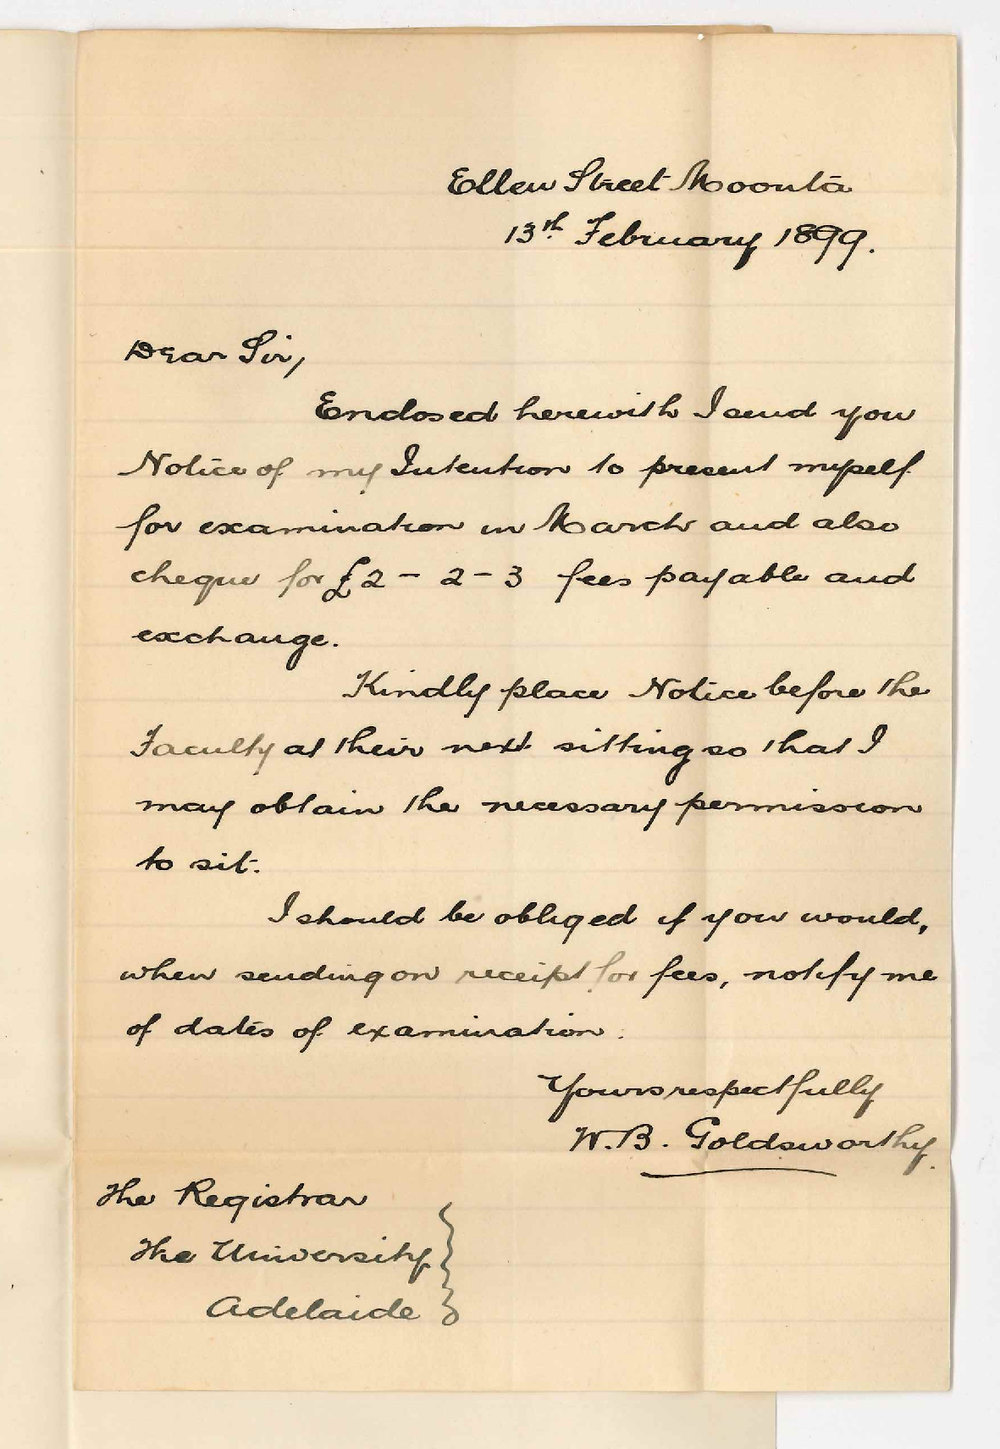 Ellen Street Moonta
13th February 1899.
Dear Sir,
Enclosed herewith I send you
Notice of my Intention to present myself
for examination in March and also
cheque for £2 - 2 - 3 fees payable and
exchange.
Kindly place Notice before the
Faculty at their next sitting so that I
may obtain the necessary permission
to sit.
I should be obliged if you would,
when sending on receipt for fees, notify me
of dates of examination.
Yours respectfully
W. B. Goldsworthy.
The Registrar
The University
Adelaide